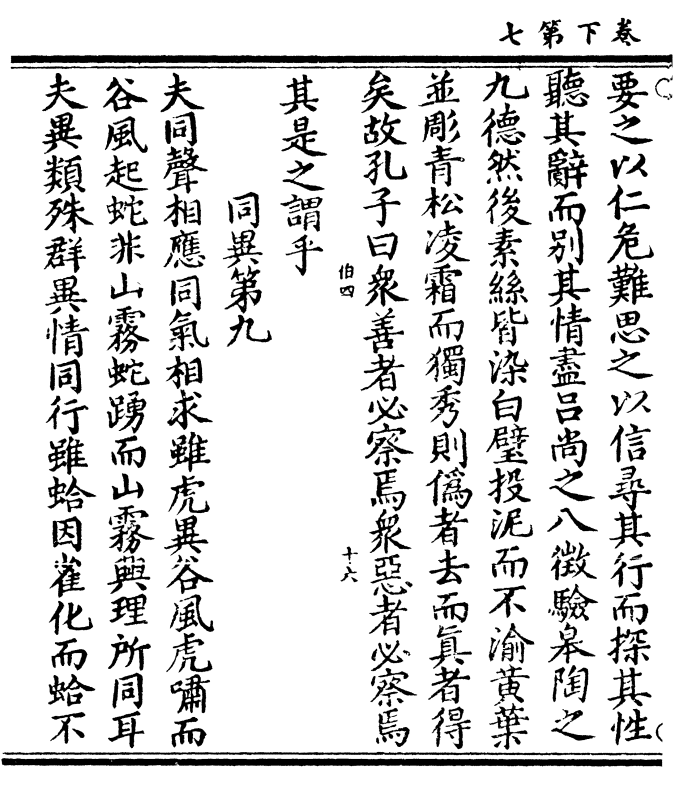 卷下第七
要之以仁危難思之以信尋其行而探其性
聽其辭而別其情盡吕尚之八徵驗皋陶之
九德然後素絲皆染白璧投泥而不渝黃葉
並彫青松凌霜而獨秀則僞者去而真者得
矣故孔子曰衆善者必察焉衆惡者必察焉
伯四
十六
其是之謂乎
同異第九
夫同聲相應同氣相求雖虎異谷風虎嘯而
谷風起蛇非山霧蛇踴而山霧興理所同耳
夫異類殊群異情同行雖蛤因雀化而蛤不